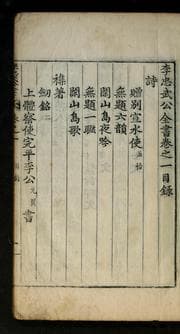 李忠武公全書卷之一目錄
詩
贈別宣水使 居怡
無題六韻
閑山島夜吟
無題一聯
閑山島歌
雜著
劒銘 二
上體察使完平李公 元翼 書